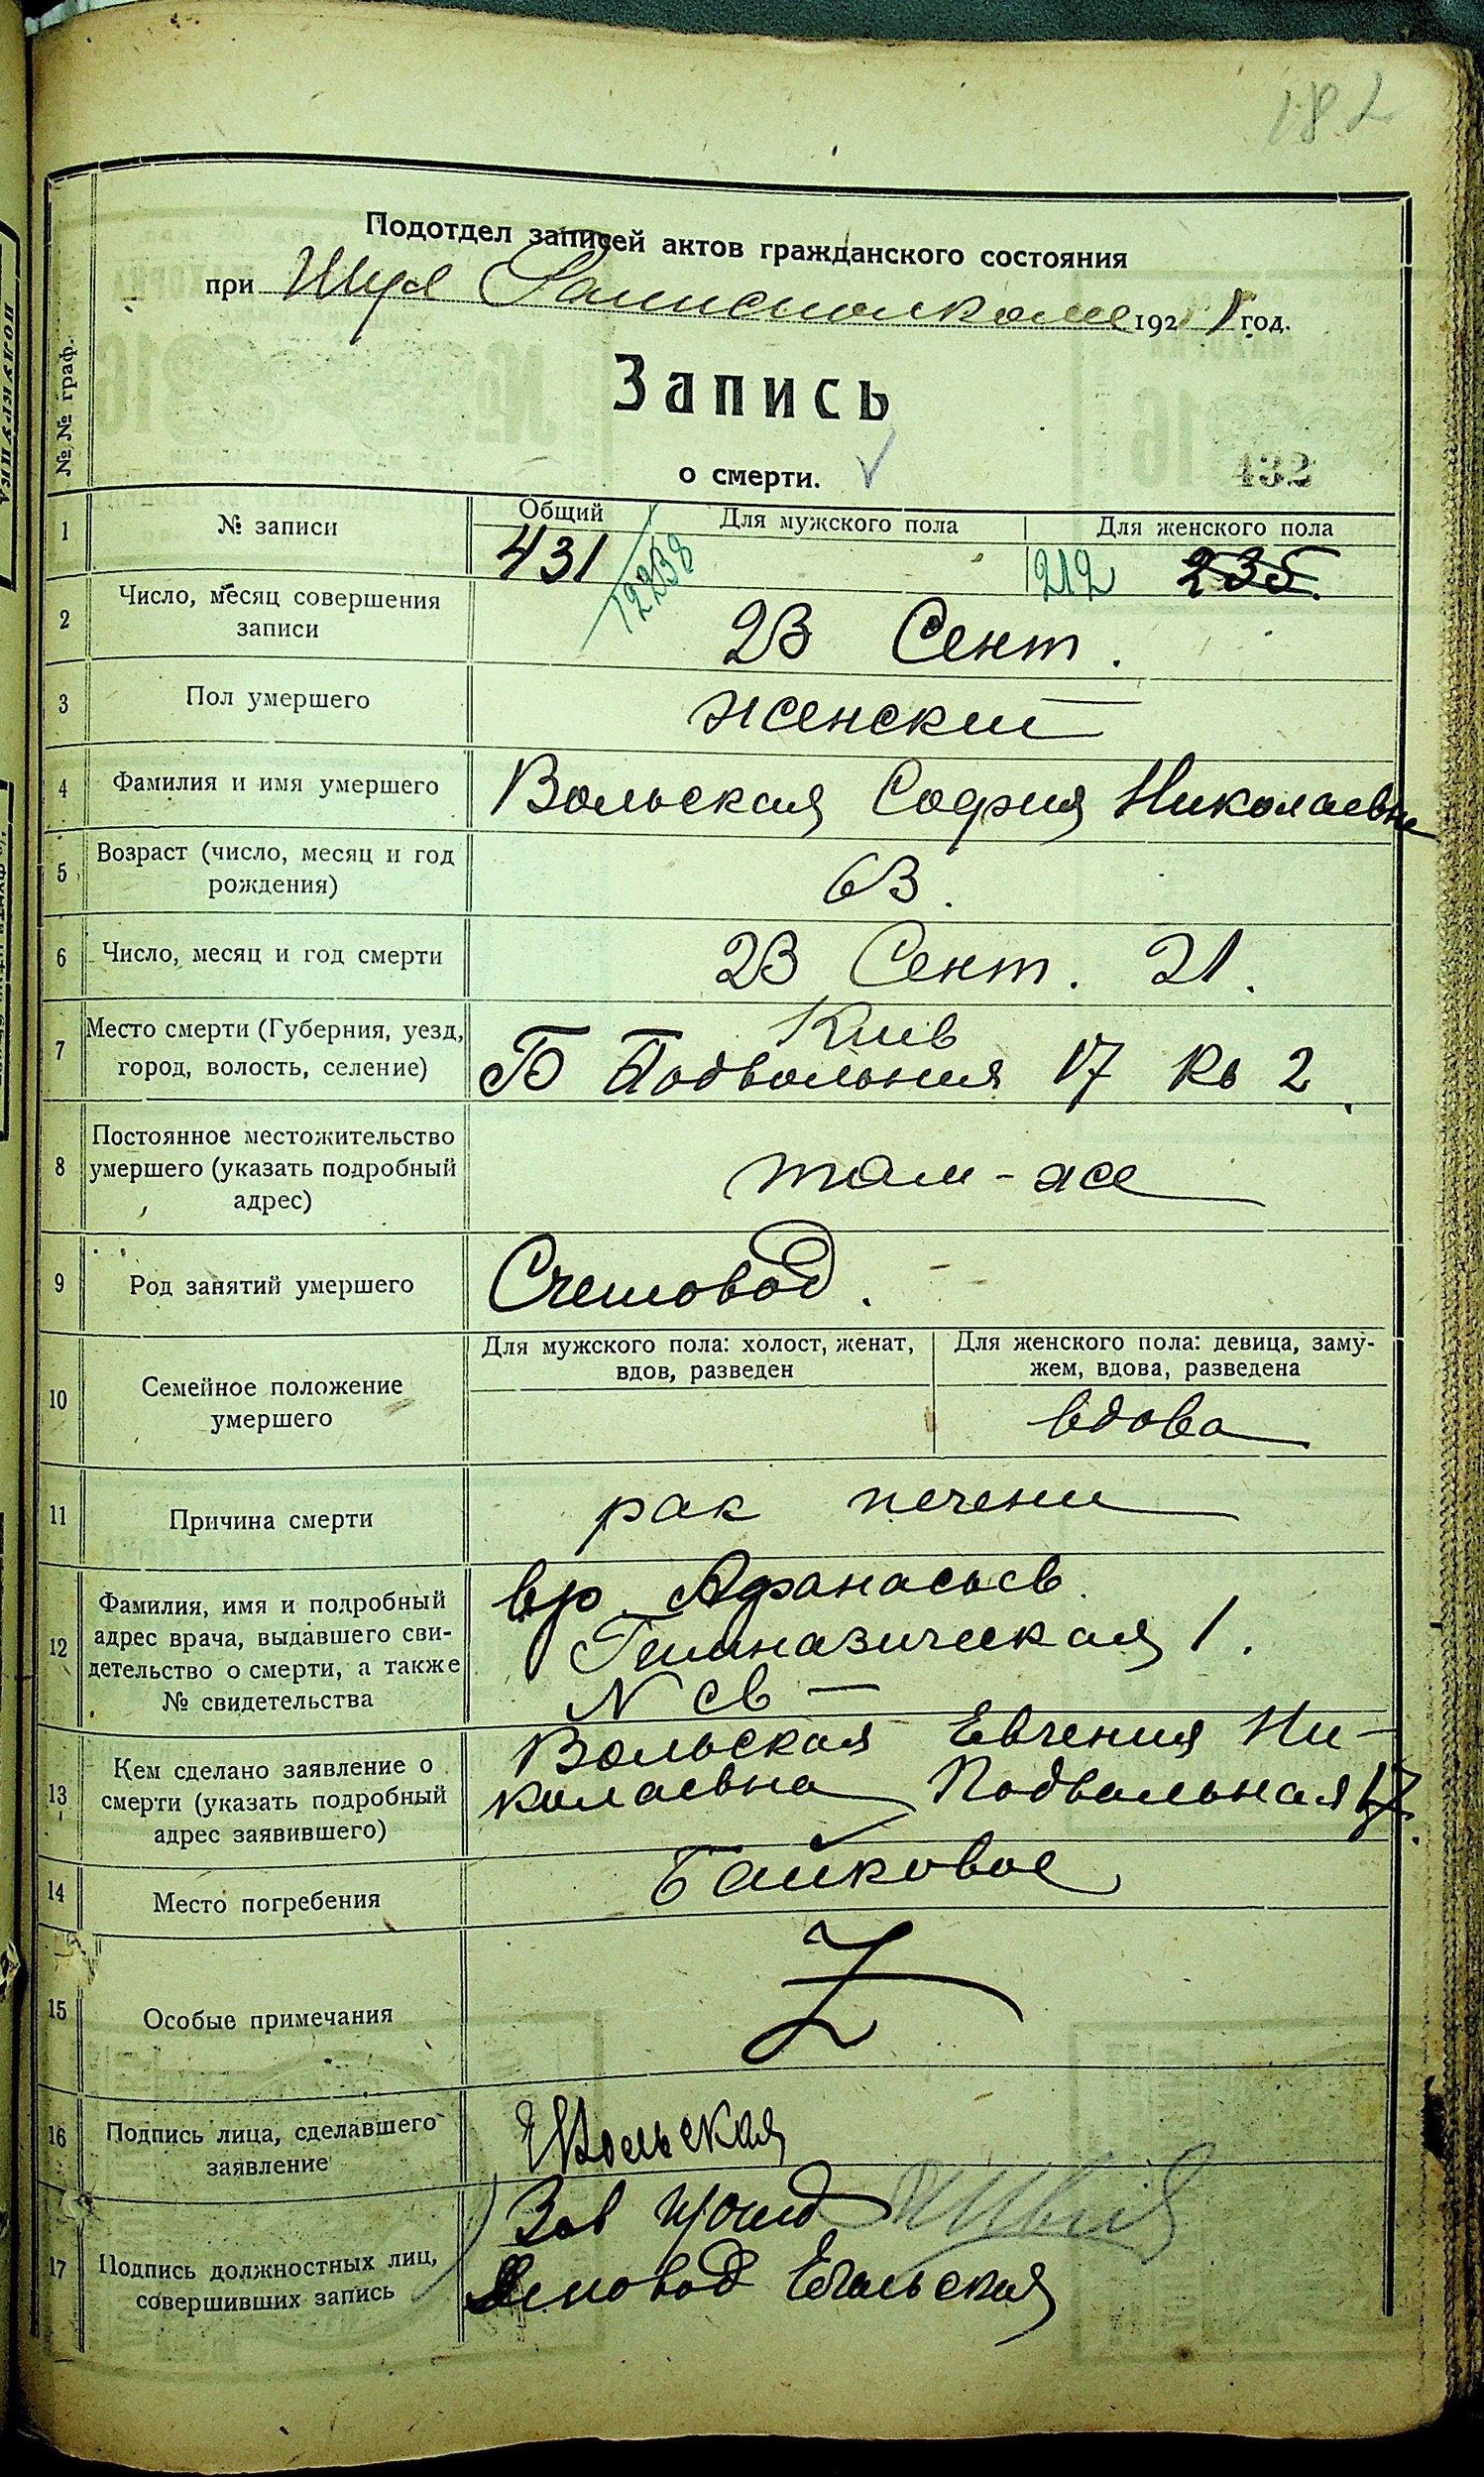 182
Подотдел записей актов гражданского состояния
при 1921 год.
№№ граф.
Запись
о смерти.
432
1 № записи Общий Для мужского пола Для женского пола
431 12238 212 235.
2 Число, месяц совершения
записи
23 Сент.
3 Пол умершего женский
4 Фамилия и имя умершего Вольская София Николаевна
5 Возраст (число, месяц и год
рождения)
63.
6 Число, месяц и год смерти 23 Сент. 21.
7 Место смерти (Губерния, уезд,
город, волость, селение)
Киев
Б Подвольная 17 кв 2.
8 Постоянное местожительство
умершего (указать подробный
адрес)
там-же
9 Род занятий умершего Счетовод.
10 Семейное положение
умершего
Для мужского пола: холост, женат,
вдов, разведен
Для женского пола: девица, заму-
жем, вдова, разведена
вдова
11 Причина смерти рак печени
12 Фамилия, имя и подробный
адрес врача, выдавшего сви-
детельство о смерти, а также
№ свидетельства
вр. Афанасьев
Гимназическая 1.
N св —
13 Кем сделано заявление о
смерти (указать подробный
адрес заявившего)
Вольская Евгения Ни-
колаевна Подвальная 17.
14 Место погребения Байковое
15 Особые примечания Z
16 Подпись лица, сделавшего
заявление
ЕВольская
17 Подпись должностных лиц,
совершивших запись
Зав